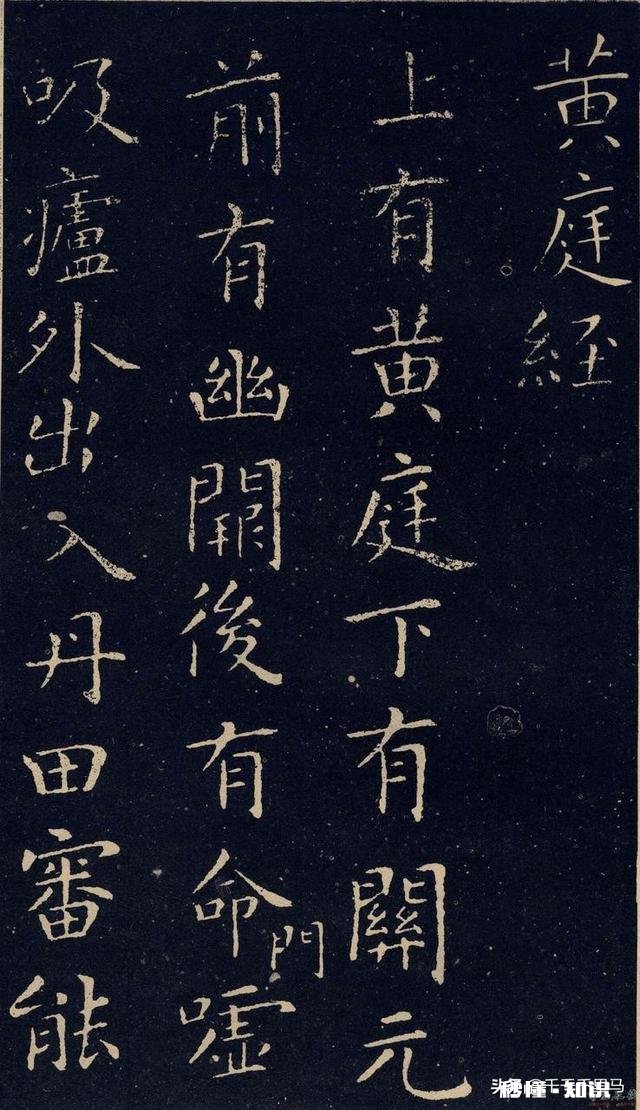 黄庭經
上有黄庭下有關元
前有幽闕後有命門噓
吸廬外出入丹田審能
秒懂·知识